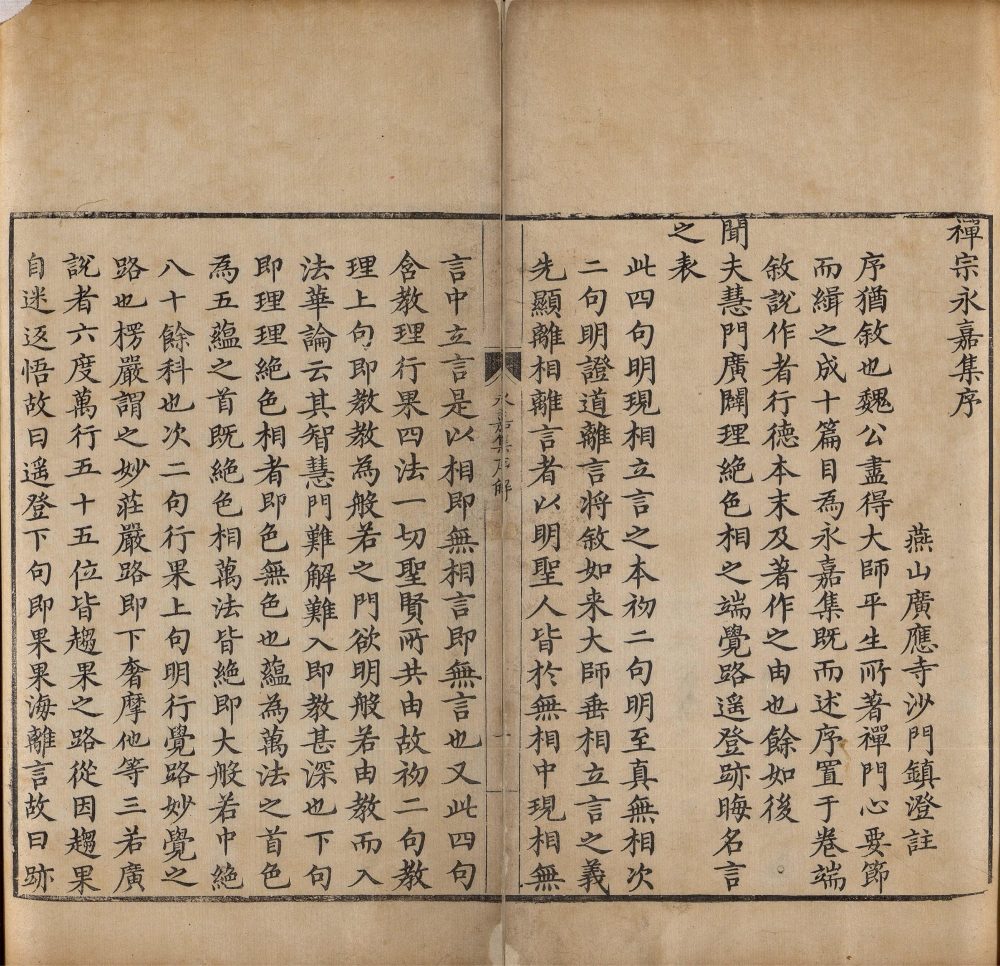 禪宗永嘉集序
燕山廣應寺沙門鎮澄註
序猶敘也魏公盡得大師平生所著禪門心要節
而緝之成十篇目為永嘉集既而述序置于卷端
敘說作者行德本末及著作之由也餘如後
聞夫慧門廣闢理絕色相之端覺路遥登跡晦名言
之表
此四句明現相立言之本初二句明至真無相次
二句明證道離言將敘如来大師垂相立言之義
先顯離相離言者以明聖人皆於無相中現相無
永嘉集序解
一
言中立言是以相即無相言即無言也又此四句
含教理行果四法一切聖賢所共由故初二句教
理上句即教教為般若之門欲明般若由教而入
法華論云其智慧門難解難入即教甚深也下句
即理理絕色相者即色無色也蘊為萬法之首色
為五蘊之首既絕色相萬法皆絕即大般若中絕
八十餘科也次二句行果上句明行覺路妙覺之
路也楞嚴謂之妙莊嚴路即下奢摩他等三若廣
說者六度萬行五十五位皆趨果之路從因趨果
自迷返悟故曰遥登下句即果果海離言故曰跡